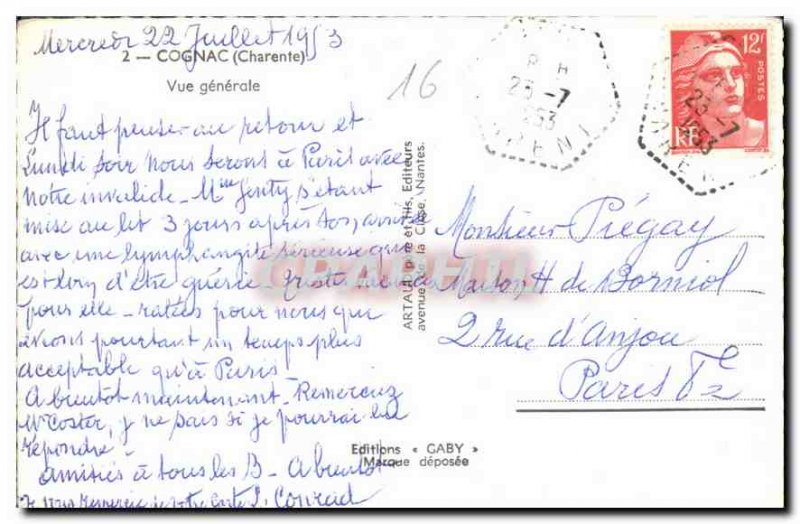 Mercredi 22 Juillet 1953
2 — COGNAC (Charente)
Vue générale
16
12F
POSTES
RF
23-7
1953
23-7
1953
Il faut penser au retour et
Lundi soir nous serons à Paris avec
notre invalide - Mme Genty s'étant
mise au lit 3 jours après son arrivée
avec une lymphangite sérieuse qui
est loin d'être guérie - tristes vacances
pour elle - ratées pour nous qui
avions pourtant un temps plus
acceptable qu'à Paris
A bientôt maintenant - Remerciez
Mr Coster, je ne sais si je pourrai lui
répondre -
amitiés à tous les B - A bientôt
Je vous remercie de votre carte S. Conrad
ARTAUD père et fils, Editeurs
avenue de la Close, Nantes.
Monsieur Piégay
Maison H de Borniol
2 rue d'Anjou
Paris
Editions « GABY »
Marque déposée